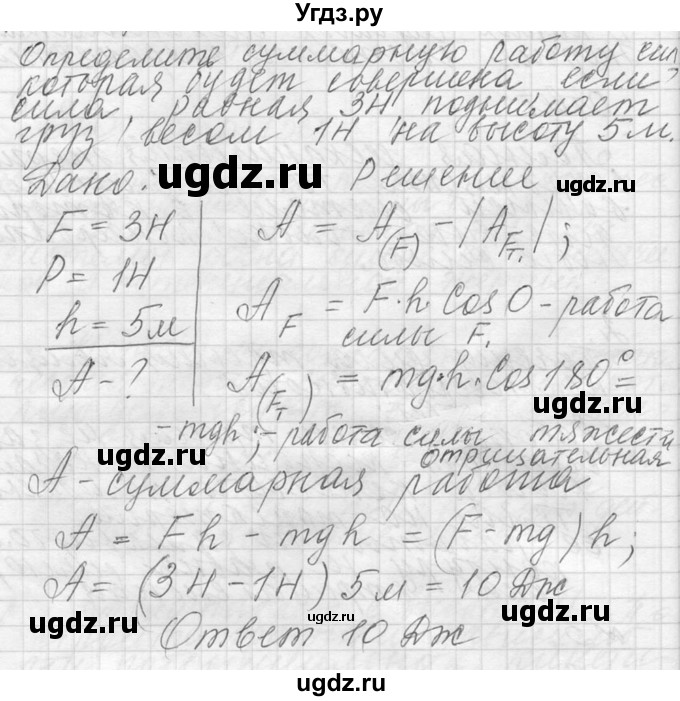 Угдз.ру
Определить суммарную работу сил
которая будет совершена если
сила, равная 3Н поднимает
груз, весом 1Н на высоту 5м.
Дано: Решение
F = 3Н
P = 1Н
h = 5м
A - ?
A = A(F) - |A Fт.|;
A F = F·h·Cos0 - работа
силы F.
A(Fт) = mg·h·Cos180° =
-mgh; - работа силы тяжести
отрицательная
A - суммарная работа
A = Fh - mgh = (F-mg)h;
A = (3Н-1Н) 5м = 10 Дж
Ответ 10 Дж
ugdz.ru
ugdz.ru
ugdz.ru
ugdz.ru
ugdz.ru
ugdz.ru
ugdz.ru
ugdz.ru
ugdz.ru